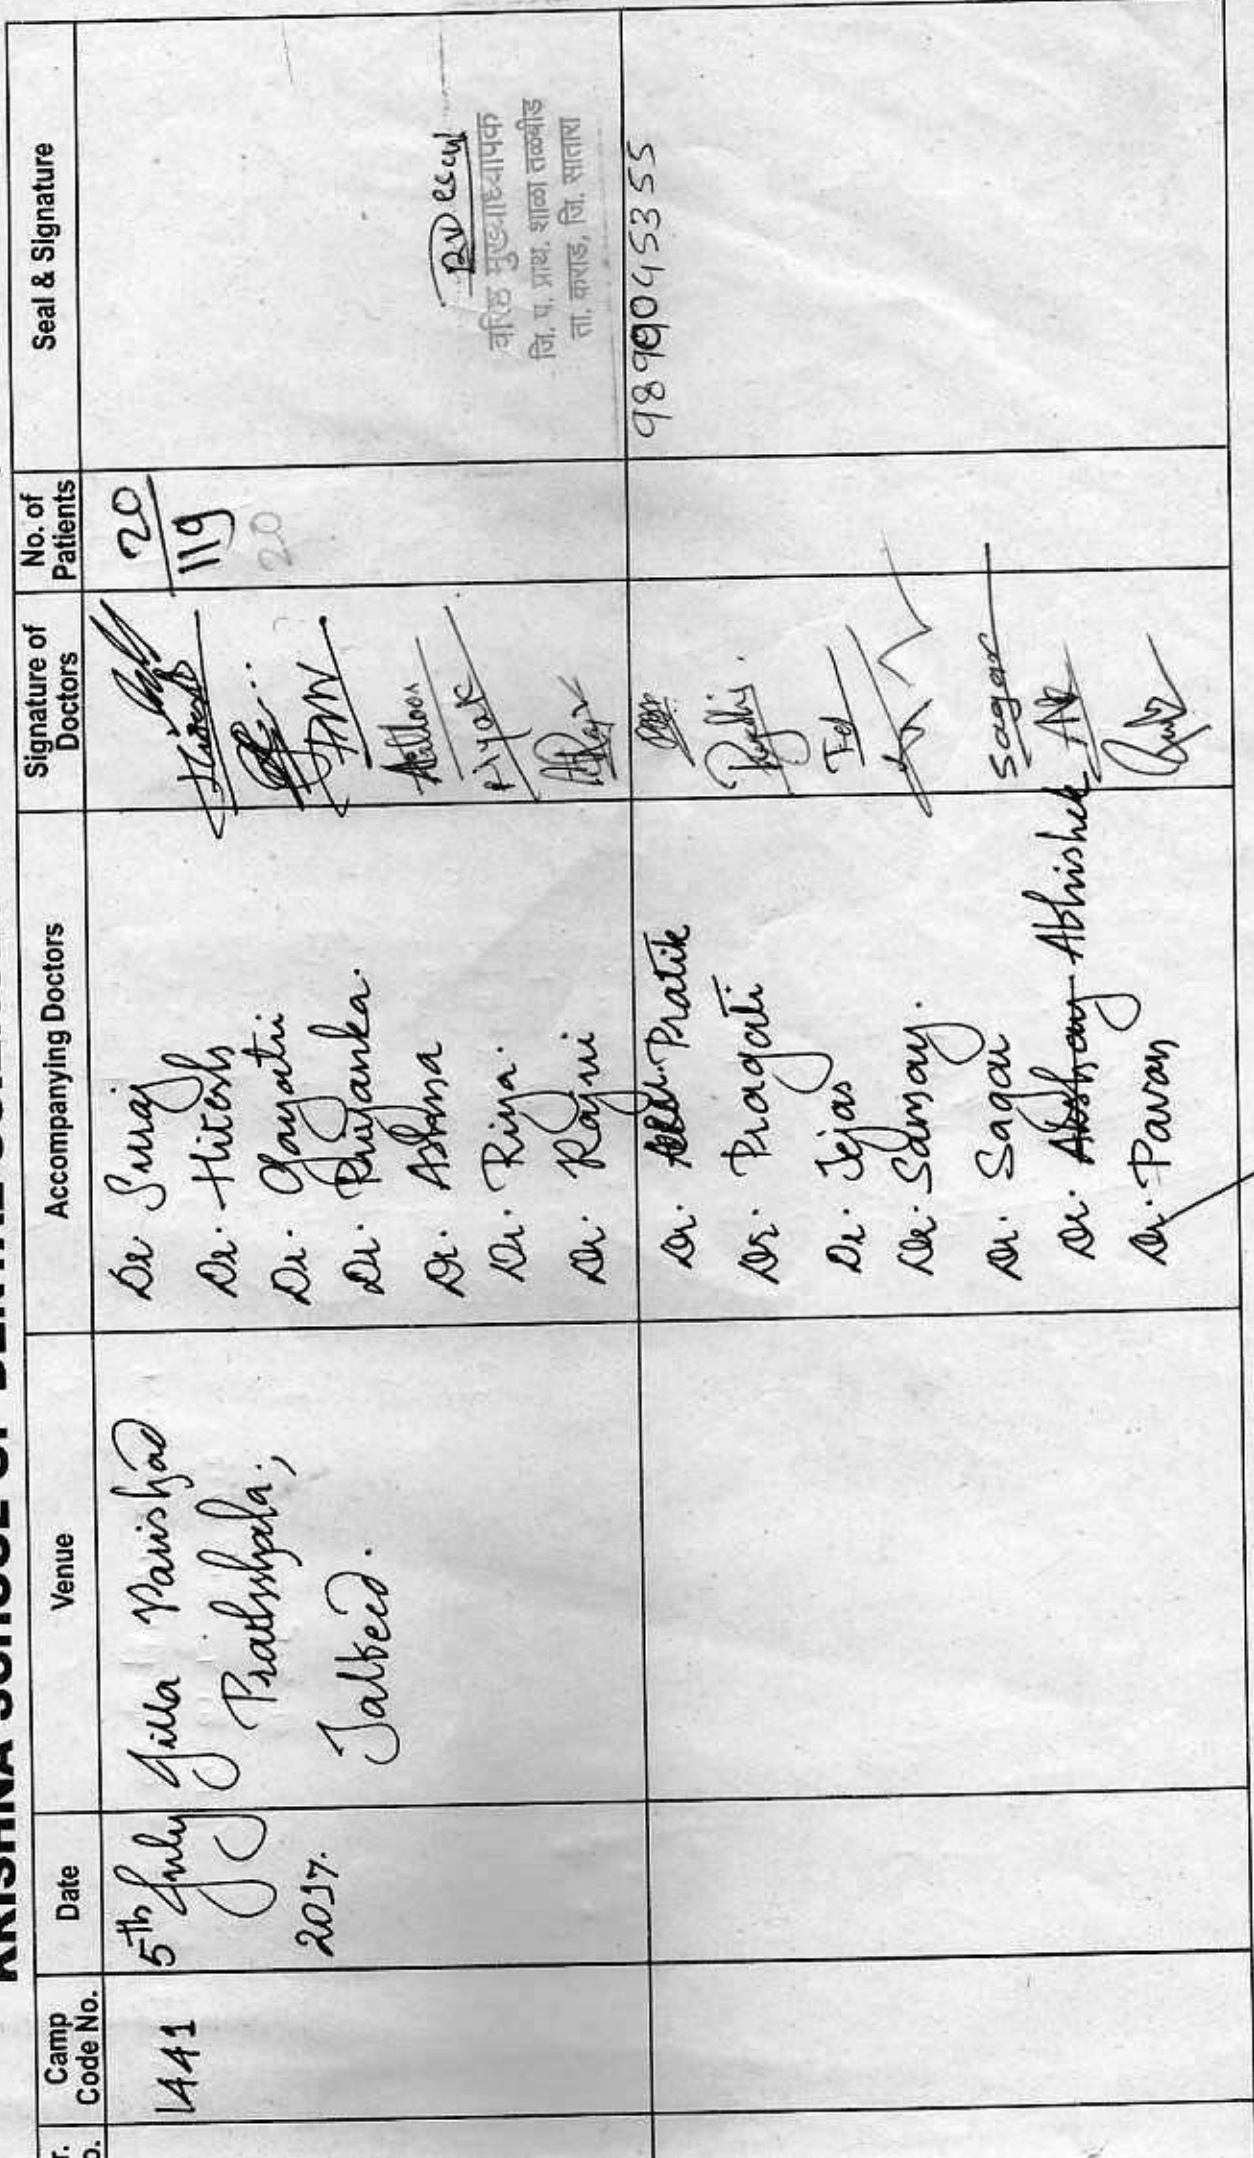 KRISHNA SCHOOL OF DENTAL
Camp Code No.
Date
Venue
Accompanying Doctors
Signature of Doctors
No. of Patients
Seal & Signature
1441
5th July
2017.
Jilla Parishad
Prathshala,
Talbeed.
Dr Suraj
Dr. Hitesh
Dr. Gayatri
Dr. Priyanka.
Dr. Ashna
Dr. Riya.
Dr. Rajni
20
119
20
वरिष्ठ मुख्याध्यापक
जि. प. प्राथ. शाळा तळबीड
ता. कराड, जि. सातारा
Dr. Pratik
Dr. Pragati
Dr. Tejas
Dr. Samay.
Dr. Sagar
Dr. Akshay Abhishek
Dr. Pavan
Sagar